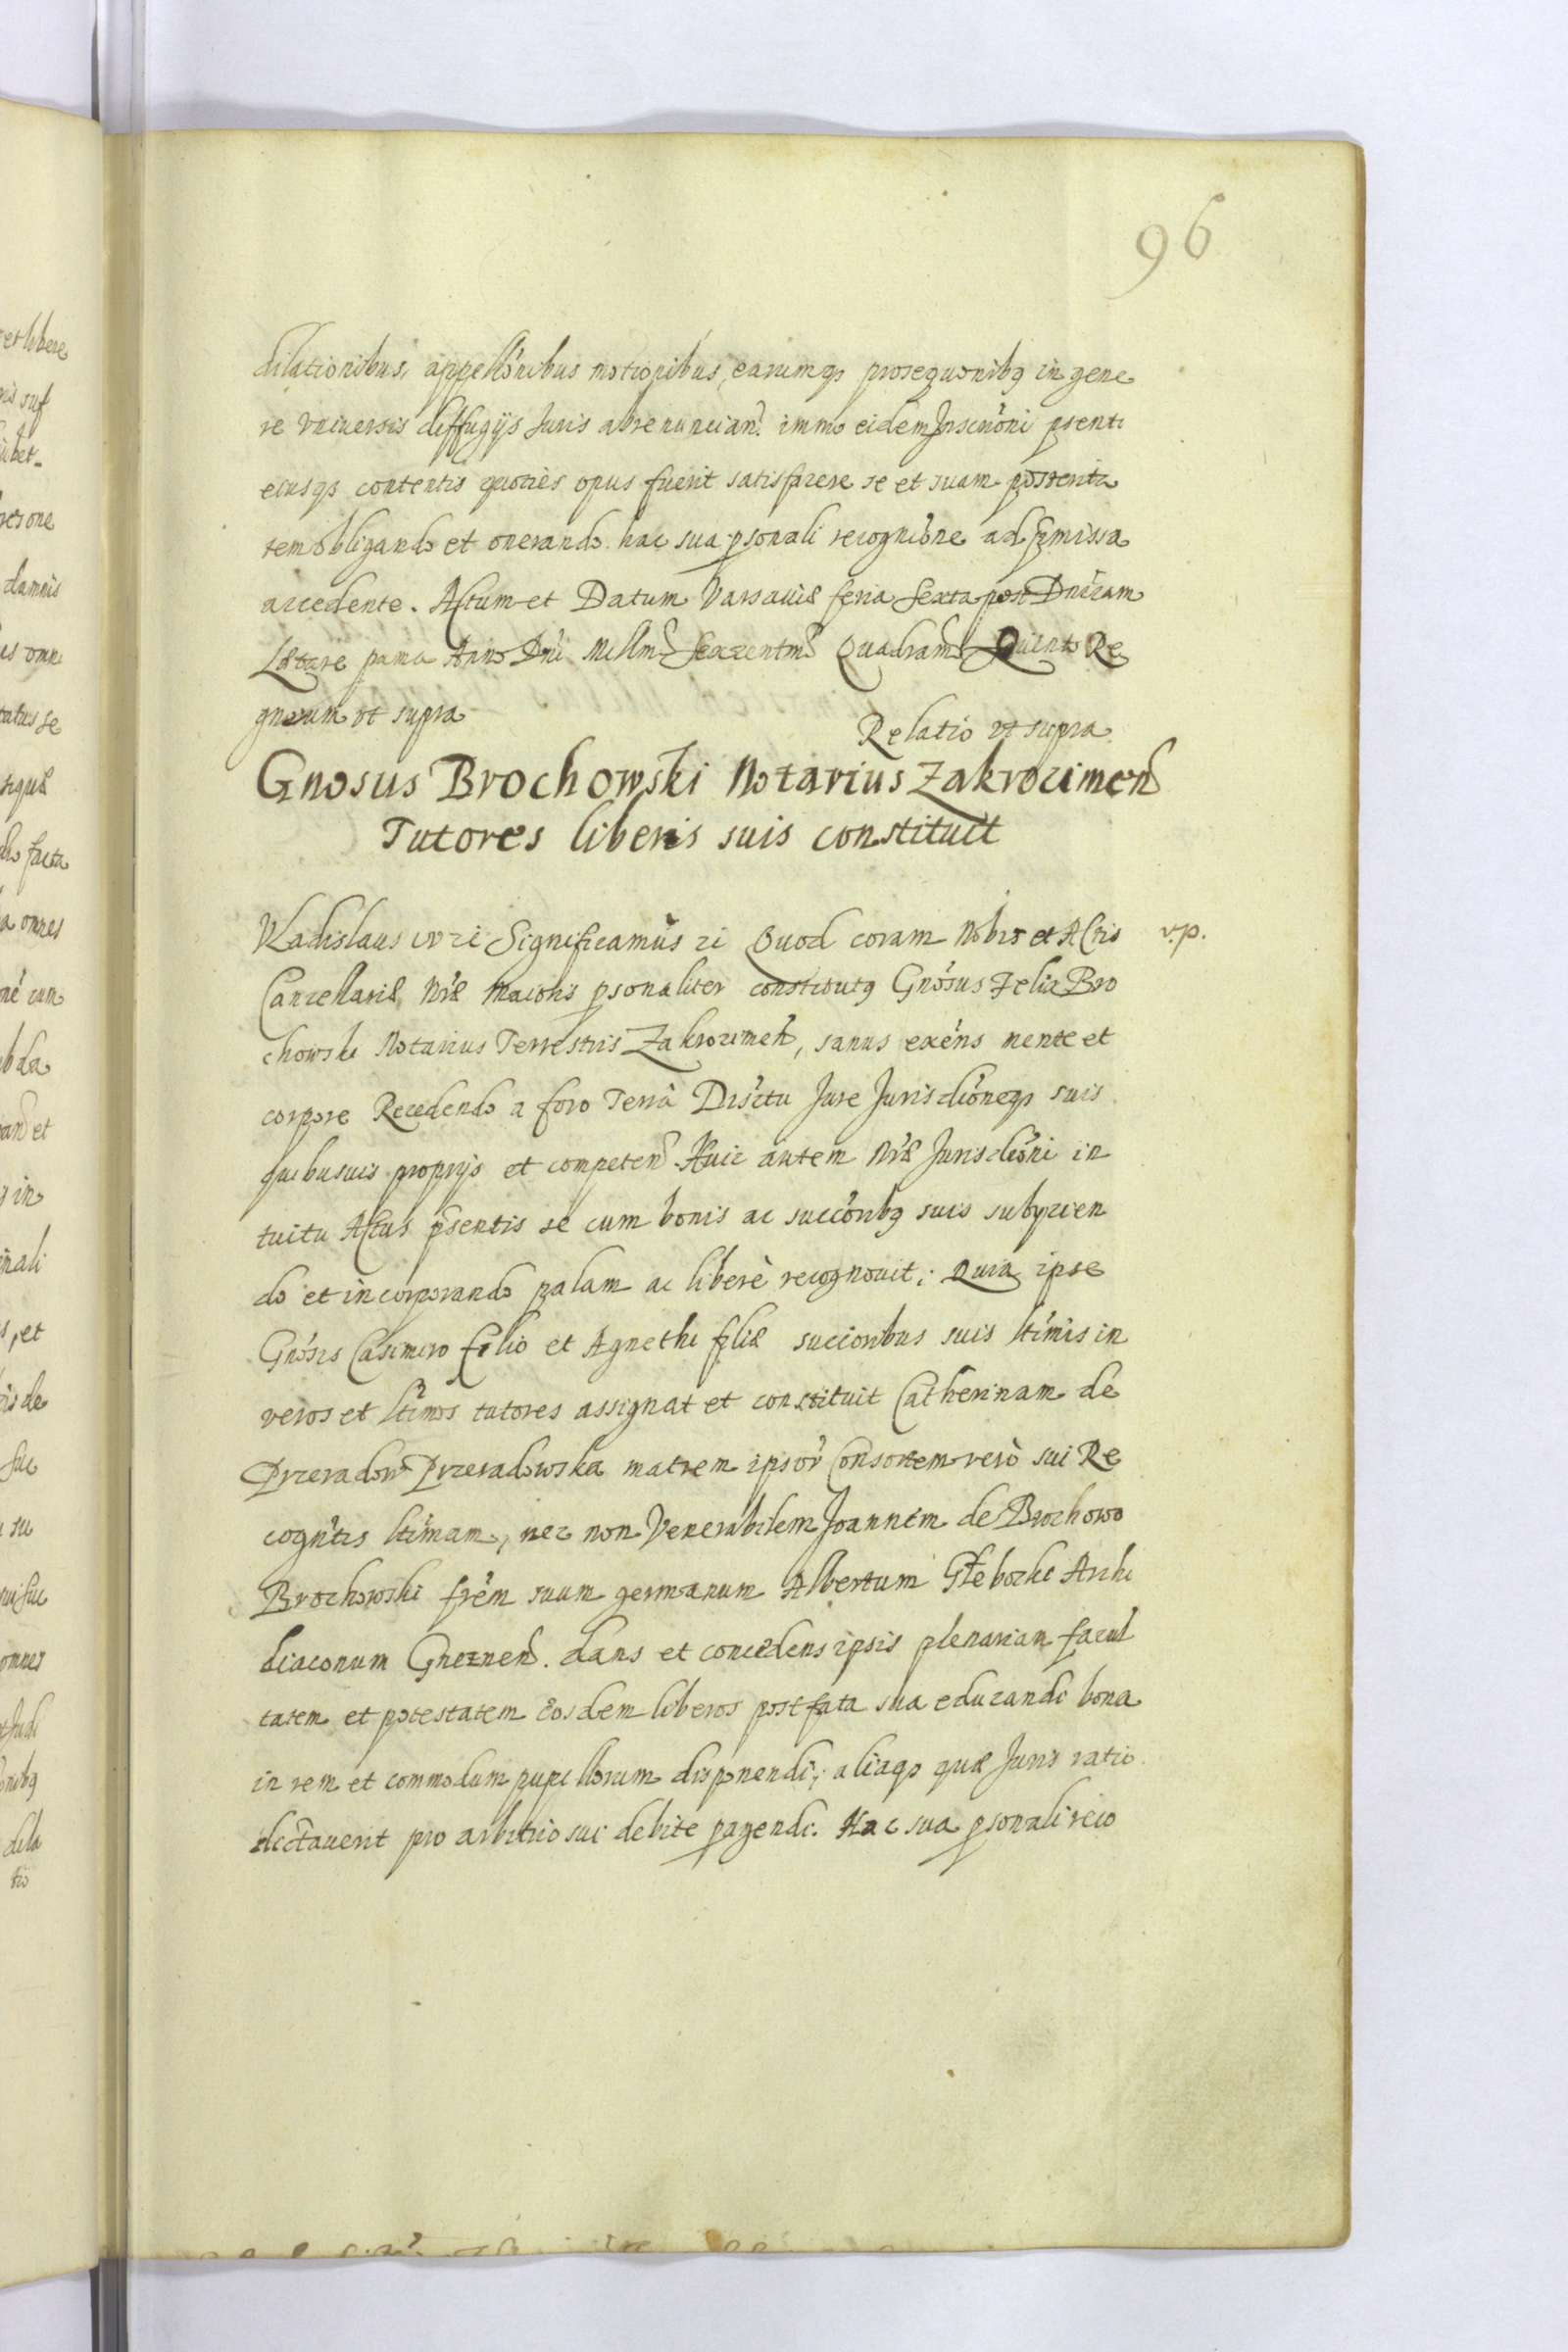 96
dilationibus, appellõnibus motionibus, earumqȝ prosequõnibꝰ in gene
re vniversis diffugijs Juris abrenuncian̄. immo eidem Inscriõni pſenti
eiusqȝ contentis quoties opus fuerit satisfacere se et suam posterita
tem obligando et onerando. hac sua psonali recognõne ad pmissa
accedente. Actum et Datum Varsaviæ feria sexta post Dnicam
Lætare pama Anno Dni Millmo Sexcentmo Quadramo Quinto Re
gnorum vt supra
Relatio vt supra
Gnosus Brochowski Notarius Zakrocimen
Tutores liberis suis constituit
Vladislaus IV zc Significamus zc Quod coram Nobis et Actis v.p.
Cancellariæ Nræ Maioris psonaliter constitutꝰ Gnosus Felix Bro
chowski Notarius Terrestris Zakrocimen, sanus exens mente et
corpore Recedendo a foro Terrâ Disctu Jure Jurisdiõneqȝ suis
quibusuis proprijs et competen. Huic autem Nræ Jurisdiõni in
tuitu Actus psentis se cum bonis ac succõribꝰ suis subijcien
do et incorporando palam ac liberè recognouit; Quia ipse
Gnosis Casimiro filio et Agnethi filiæ succioribus suis ltimis in
veros et ltimos tutores assignat et constituit Catherinam de
Przeradow Przeradowska matrem ipsor Consortem verò sui Re
cogntis ltimam, nec non Venerabilem Joannem de Brochowo
Brochowski frem suum germanum Albertum Głebocki Archi
diaconum Gneznen. dans et concedens ipsis plenariam facul
tatem et potestatem eosdem liberos post fata sua educandi bona
in rem et commodum pupillorum disponendi, aliaqȝ quæ Juris ratio
dictauerit pro arbitrio sui debite pagendi. Hac sua psonali reco